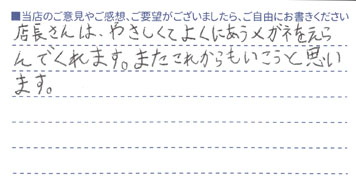 ■当店のご意見やご感想、ご要望がございましたら、ご自由にお書きください
店長さんは、やさしくてよくにあうメガネをえら
んでくれます。またこれからもいこうと思い
ます。